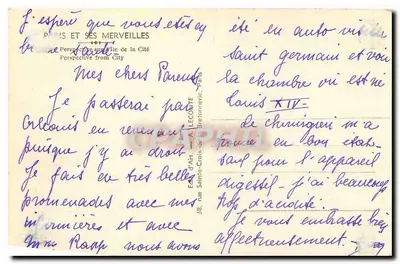 J'espère que vous êtes en
PARIS ET SES MERVEILLES
bonne santé
Perspective de la Cité
Perspective from City
Mes chers Parents,
Je passerai par
Orléans en revenant
puisque j'y ai droit
Je fais de très belles
promenades avec mes
infirmières et avec
Mme Rapp nous avons
Edit. d'Art LECONTE
38, rue Sainte-Croix-de-la-Bretonnerie, Paris
été en auto visiter
saint germain et voir
la chambre où est né
Louis XIV.
Le chirurgien m'a
trouvé en bon état
sauf pour l'appareil
digestif - j'ai beaucoup
trop d'acidité.
Je vous embrasse bien
affectueusement.